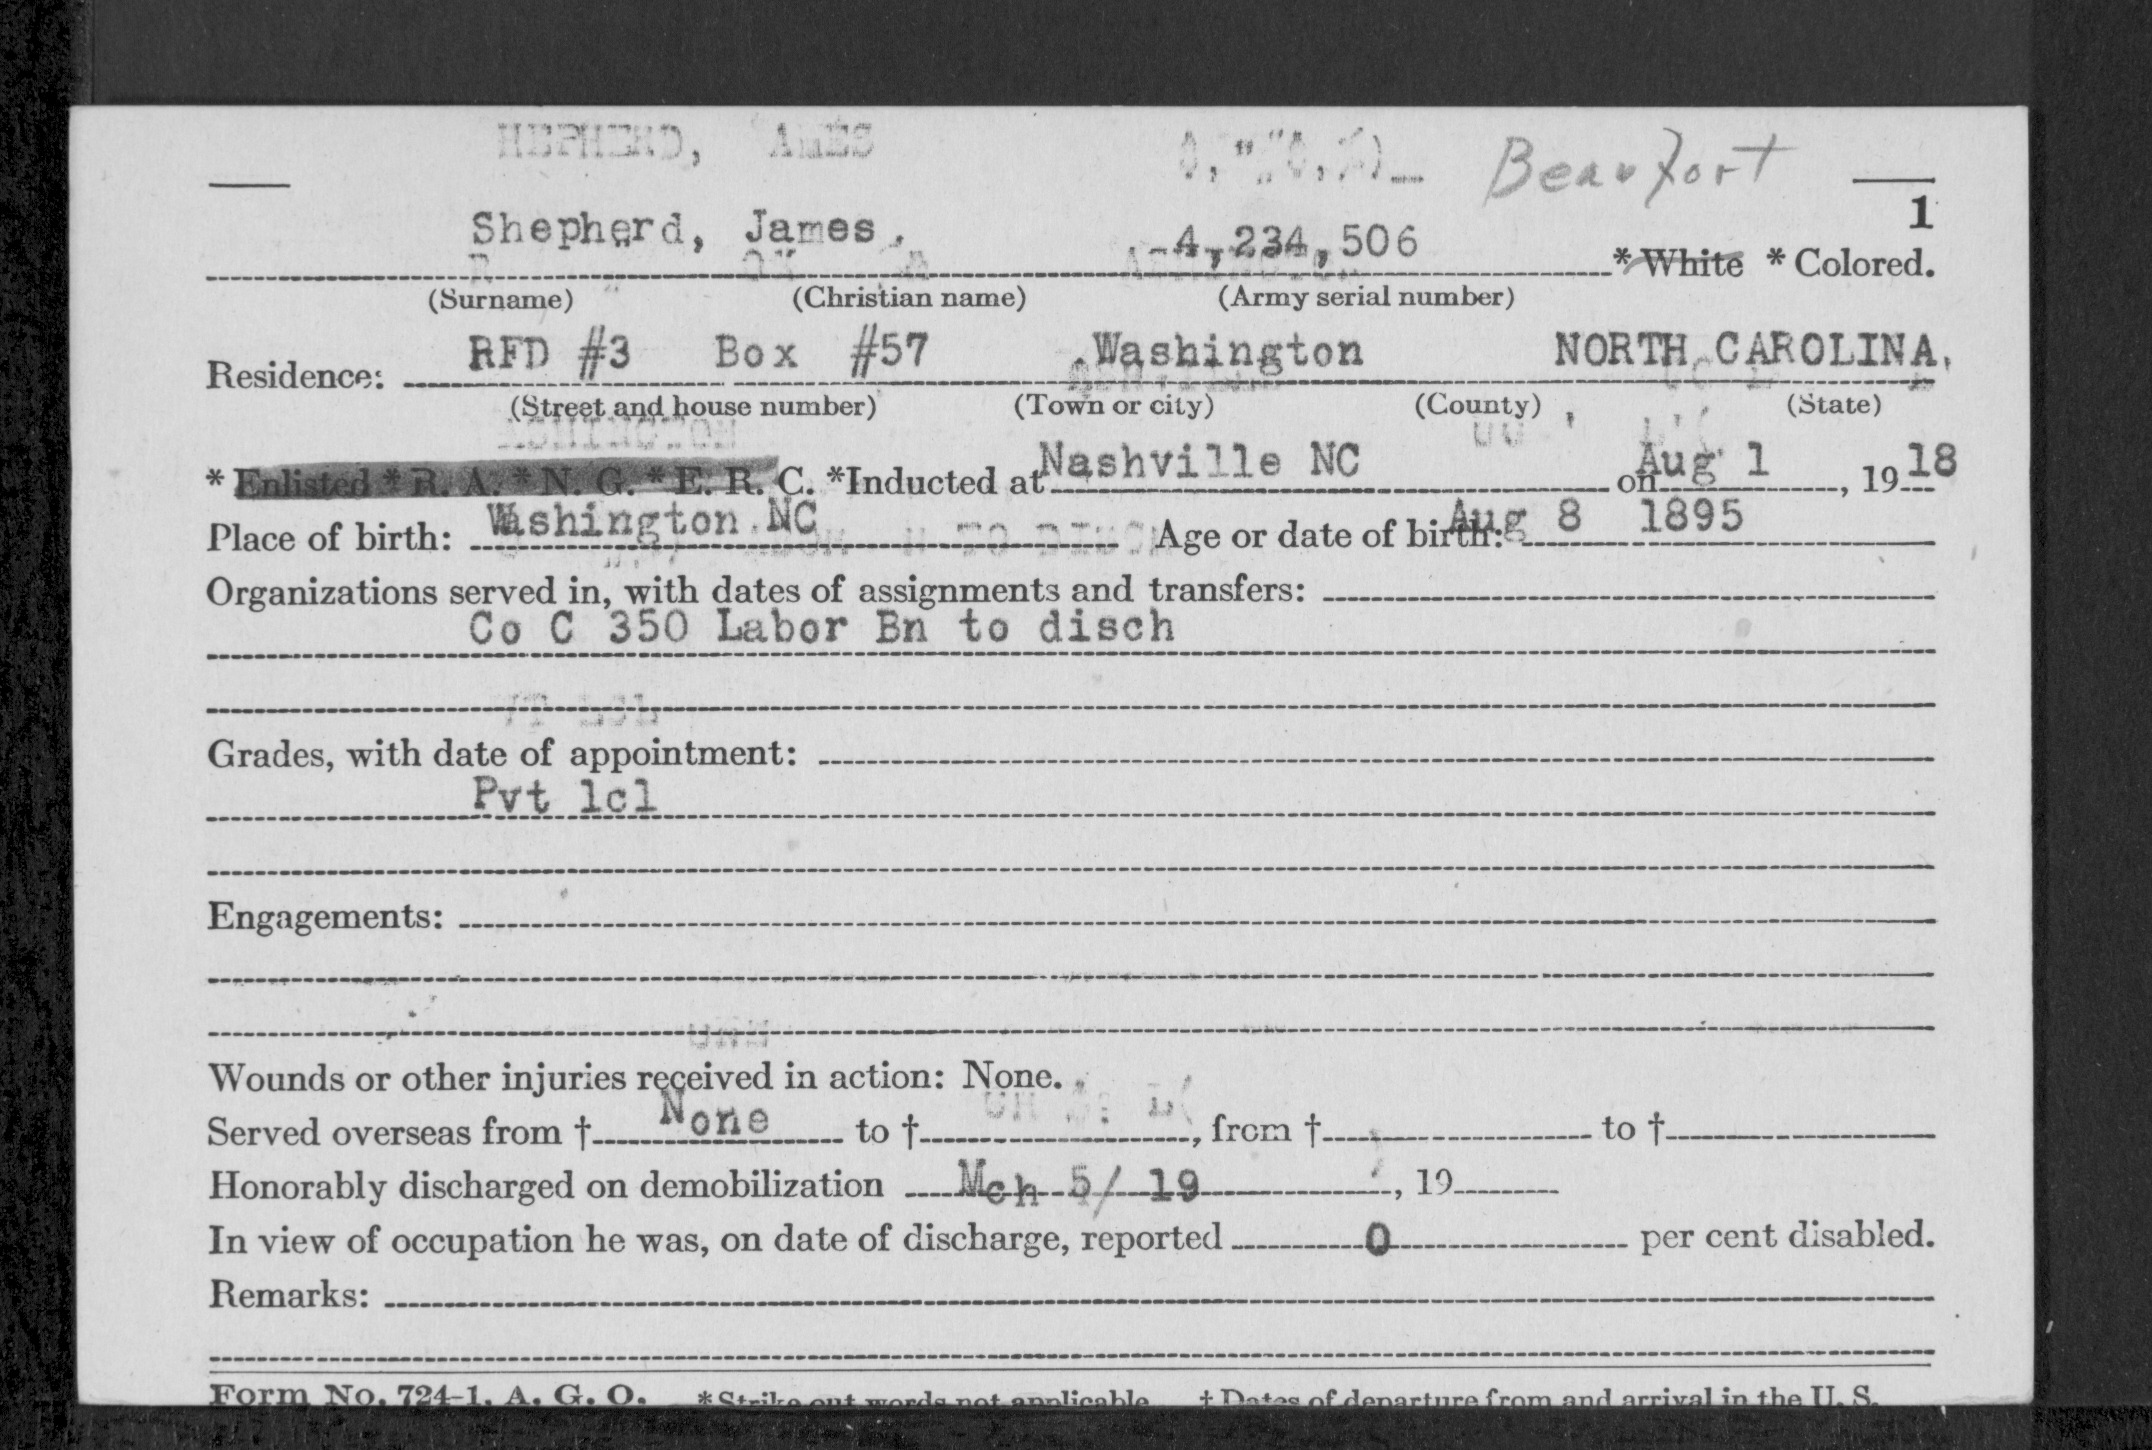 Beaufort
1
Shepherd, James. 4,234,506 * White * Colored.
(Surname) (Christian name) (Army serial number)
Residence: RFD #3 Box #57 Washington NORTH CAROLINA.
(Street and house number) (Town or city) (County) (State)
* Enlisted * R. A. * N. G. * E. R. C. *Inducted at Nashville NC on Aug 1, 19 18
Place of birth: Washington NC Age or date of birth: Aug 8 1895
Organizations served in, with dates of assignments and transfers:
Co C 350 Labor Bn to disch
Grades, with date of appointment:
Pvt 1cl
Engagements:
Wounds or other injuries received in action: None.
Served overseas from † None to †, from † to †
Honorably discharged on demobilization Mch 5/ 19, 19
In view of occupation he was, on date of discharge, reported 0 per cent disabled.
Remarks:
Form No. 724-1, A. G. O. * Strike out words not applicable † Dates of departure from and arrival in the U. S.